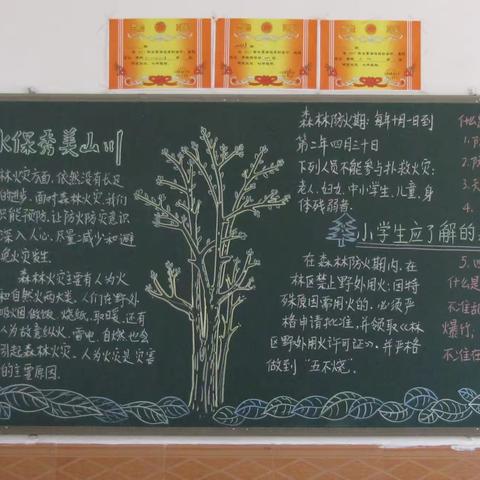 永保秀美山川
林火灾方面,依然没有长足
的进步。面对森林火灾,我们
只能预防,让防火防灾意识
深入人心,尽量减少和避
免火灾发生。
森林火灾主要有人为火
和自然火两大类,人们在野外
吸烟、做饭、烧纸、取暖、还有
人为故意纵火,雷电、自燃也会
引起森林火灾。人为火灾是灾害
的主要原因。
森林防火期:每年十月一日到
第二年四月三十日
下列人员不能参与扑救火灾:
老人、妇女、中小学生、儿童、身
体残弱者。
小学生应了解的
在森林防火期内,在
林区禁止野外用火;因特
殊原因需用火的,必须严
格申请批准,并领取《林
区野外用火许可证》,并严格
做到“五不烧”。
什么
1.
2.
3.
4.
5.
什么是
不准
爆竹,
不准在